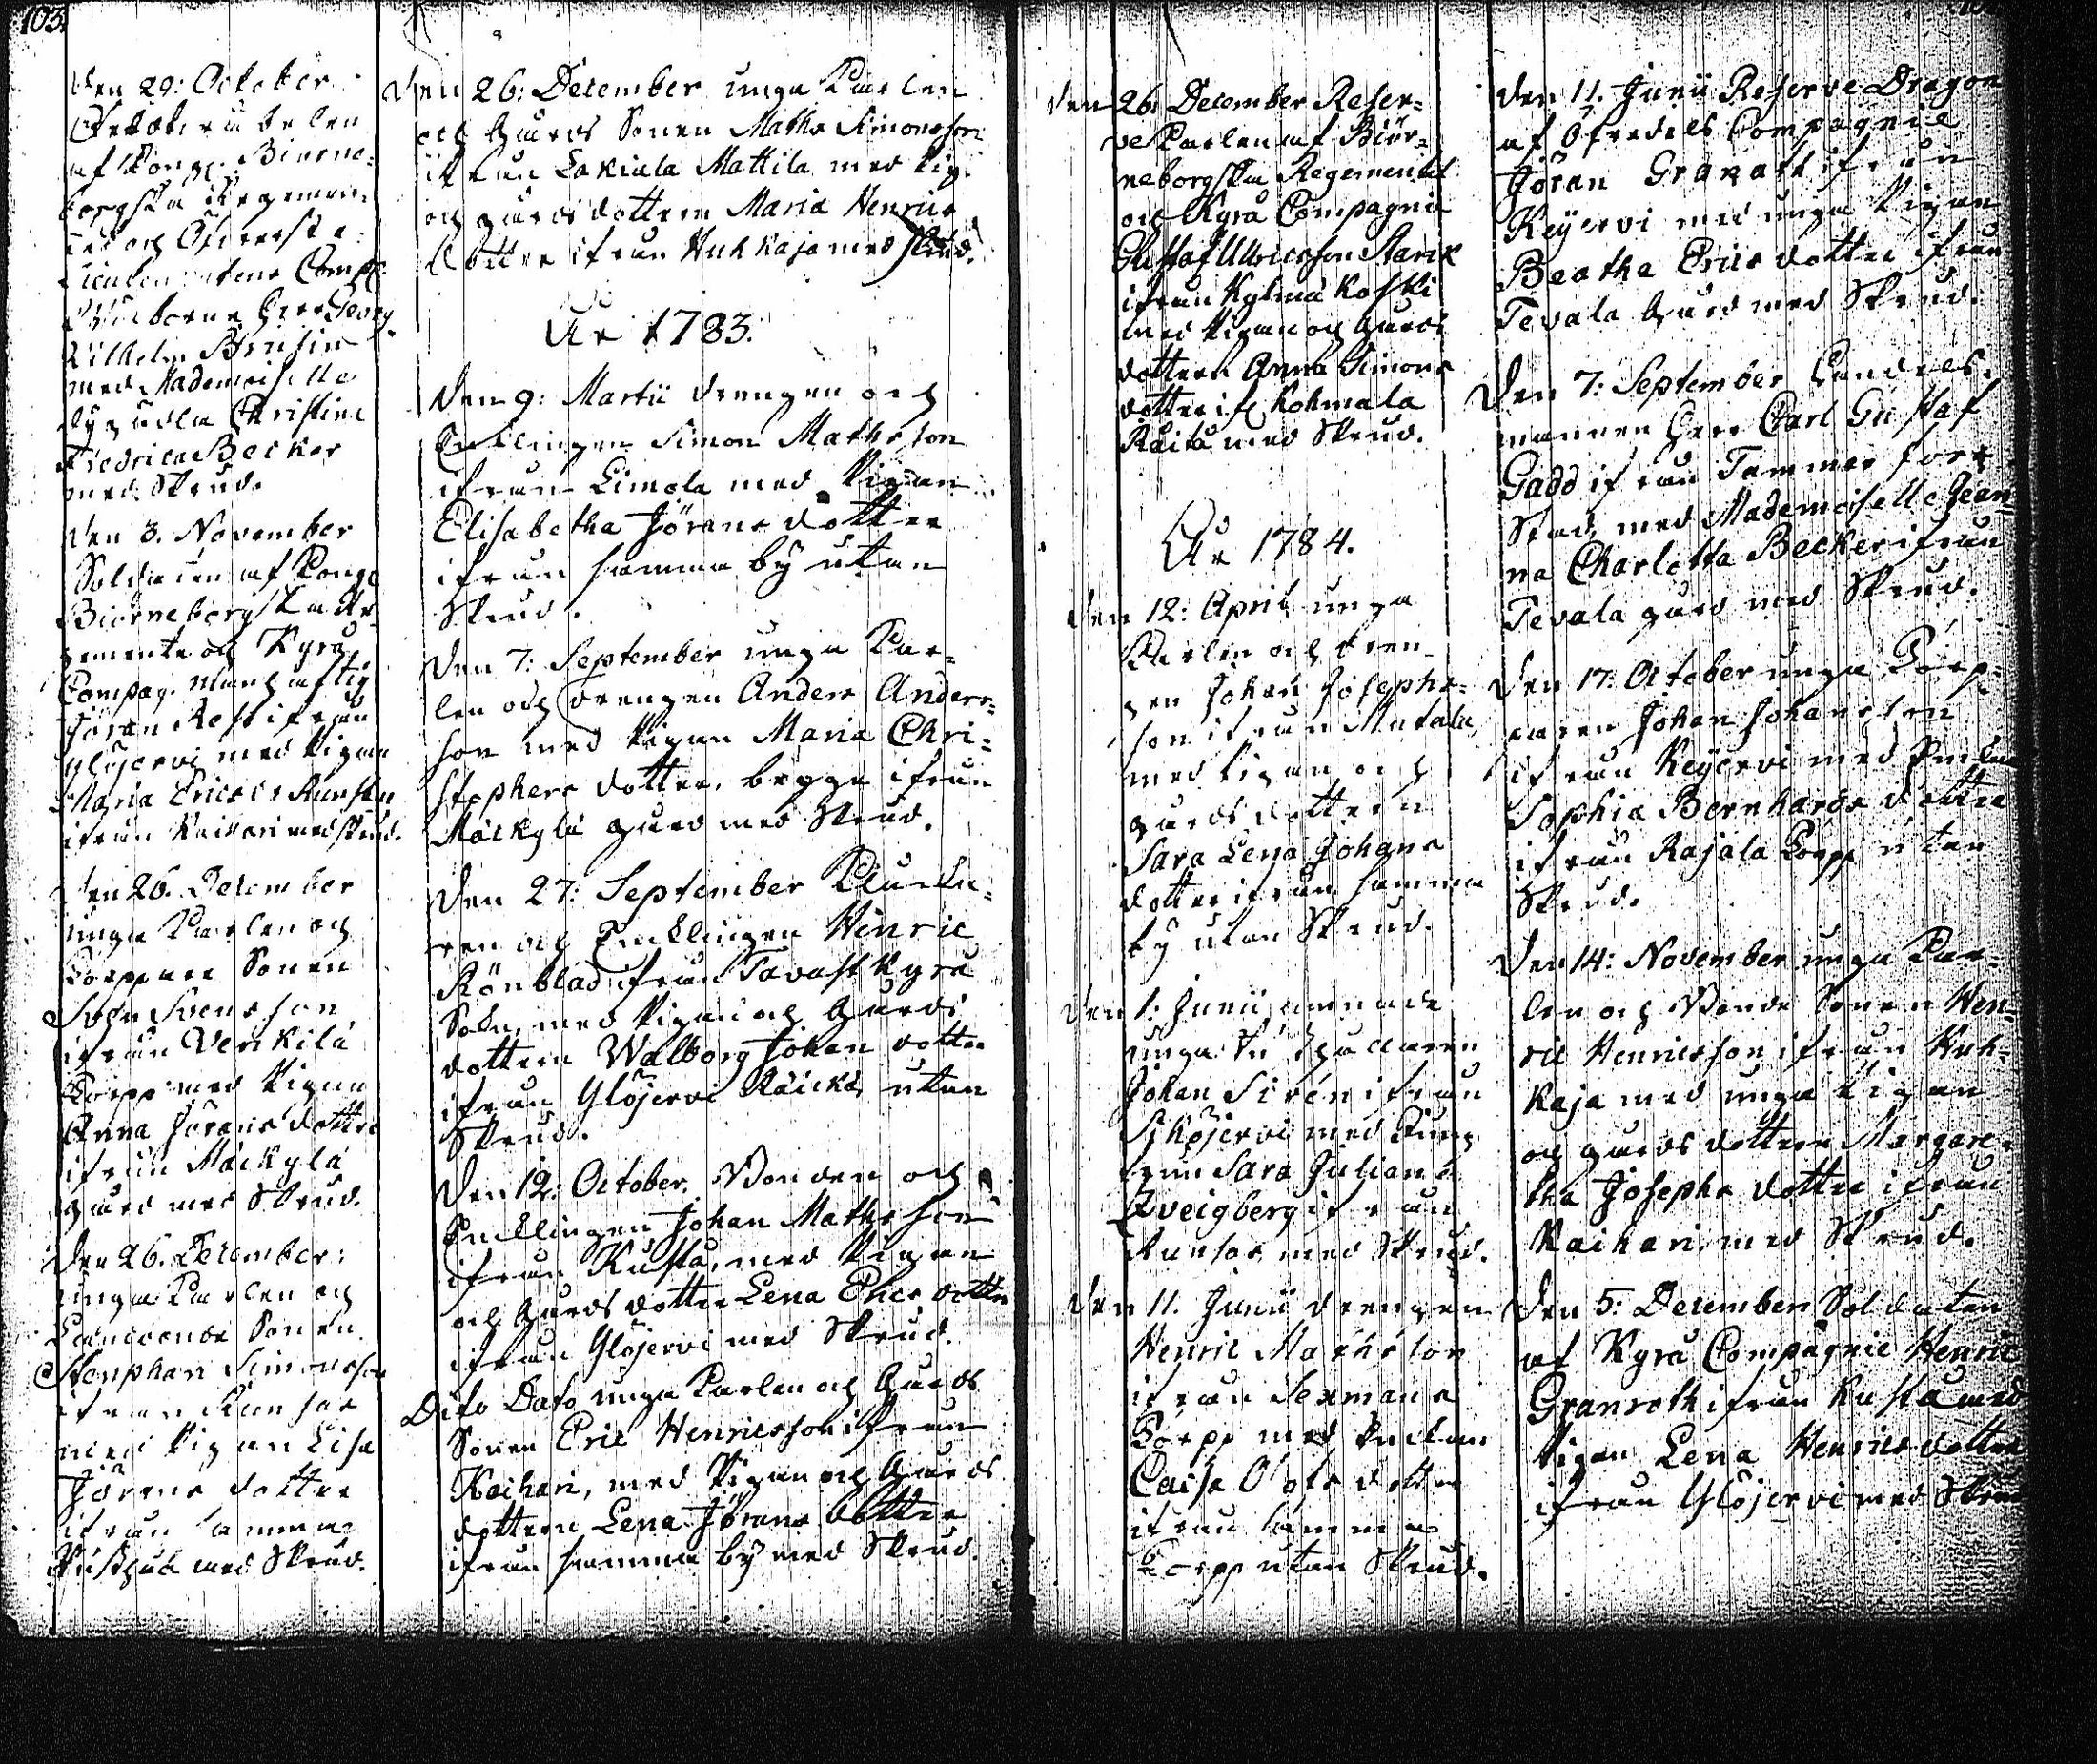 103.
Den 29: October
af Kongl. Biörne=
borgska Regemen=
tet och Öfverste
Lieutenantens Comp.
Wälborne Herr Georg
Wilhelm Brusin
med Mademoiselle
dygädla Christina
Fredrica Becker
med Skrud.
Den 3. November
Soldaten af Kongl.
Biörneborgska Re=
gemente och Kyrö
Compag. Manhaftig
Jöran Rost ifrån
Ylöjervi med Pigan
Maria Ericsdr Runsten
ifrån Kaihari med Skrud.
Den 26. December
unga Karlen och
Torppare Sonen
Sven Svensson
ifrån Verkilä
Torpp med Pigan
Anna Jörans dotter
ifrån Mäckylä
gård med Skrud.
Den 26. December:
unga Karlen och
Sonen
Stephan Simonsson
ifrån
med Pigan Lisa
Jörans dotter
ifrån samma
med Skrud.
Den 26: December unga Karlen
och Gårds Sonen Maths Simonsson
ifrån Lakiala Mattila med Pig.
och gårds dottern Maria Henrics
dotter ifrån Huhkaja med Skrud.
År 1783.
Den 9: Martii Drengen och
Encklingen Simon Mathsson
ifrån Limola med Pigan
Elisabetha Jörans dotter
ifrån samma by utan
Skrud.
Den 7: September unga Kar=
len och Drengen Anders Anders=
son med Pigan Maria Chri=
stophers dotter, begge ifrån
Mäckylä gård med Skrud.
Den 27: September
och Encklingen Henric
Rönblad ifrån Tavast Kyrö
Sokn, med Pigan och Gårds
dottern Walborg Johan dotter
ifrån Ylöjervi Räickä utan
Skrud.
Den 12: October. Bonden och
Encklingen Johan Mathsson
ifrån Kusta, med Pigan
och Gårds dotter Lena Ehrs dotter
ifrån Ylöjervi med Skrud.
Dito Dato unga Karlen och Gårds
Sonen Eric Henricsson ifrån
Kaihari, med Pigan och Gårds
dottern Lena Jörans dotter
ifrån samma by med Skrud.
Den 26: December Reser=
ve Karlen af Biör=
neborgska Regementet
och Kyrö Compagnie
Gustaf Ulricsson Starck
ifrån Kylmäkoski
med Pigan och Gårds
dottern Anna Simons
dotter ifr. Kohmala
Raita med Skrud.
År 1784.
Den 12: April unga
Karlen och Dren=
gen Johan Josephs=
son ifrån Mutala,
med Pigan och
gårds dottern
Sara Lena Johans
dotter ifrån samma
by utan Skrud.
Den 1: Junii
unga
Johan Sirén ifrån
Sikojervi med
Sara Juliana
Qveigberg ifrån
med Skrud.
Den 11. Junii Drengen
Henric Mathsson
ifrån Sexmans
Torpp med Enckan
Caisa Olofs dotter
ifrån samma
Torpp utan Skrud.
Den 11. Junii Reserve Dragon
af Öfredels Compagnie
Jöran Granatt ifrån
Keijervi med unga Pigan
Beatha Erics dotter ifrån
Tevala Gård med Skrud.
Den 7: September Handels=
mannen Herr Carl Gustaf
Gadd ifrån Tammerfors
Stad, med Mademoiselle Jean=
na Charlotta Becker ifrån
Tevala gård med Skrud.
Den 17: October unga Torp=
paren Johan Johansson
ifrån Keijervi med Enckan
Sophia Bernhards dotter
ifrån Rajala Torpp utan
Skrud.
Den 14: November unga Kar=
len och Bonde Sonen Hen=
ric Henricsson ifrån Huh=
kaja med unga Pigan
och gårds dottern Margare=
tha Josephs dotter ifrån
Kaihari, med Skrud.
Den 5: December Soldaten
af Kyrö Compagnie Henric
Granroth ifrån Kusta med
Pigan Lena Henrics dotter
ifrån Ylöjervi med Skrud